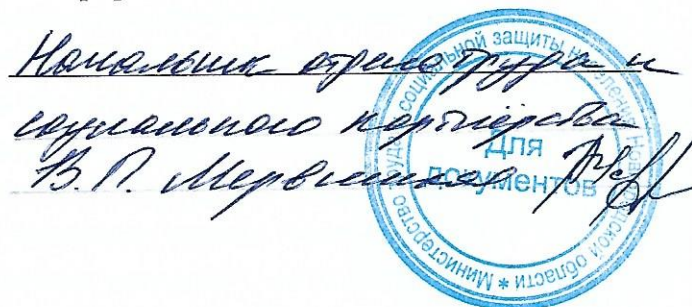 Начальник отдела труда и
социального партнерства
В.П.
Министерство труда и социальной защиты населения Новгородской области *
Для
документов